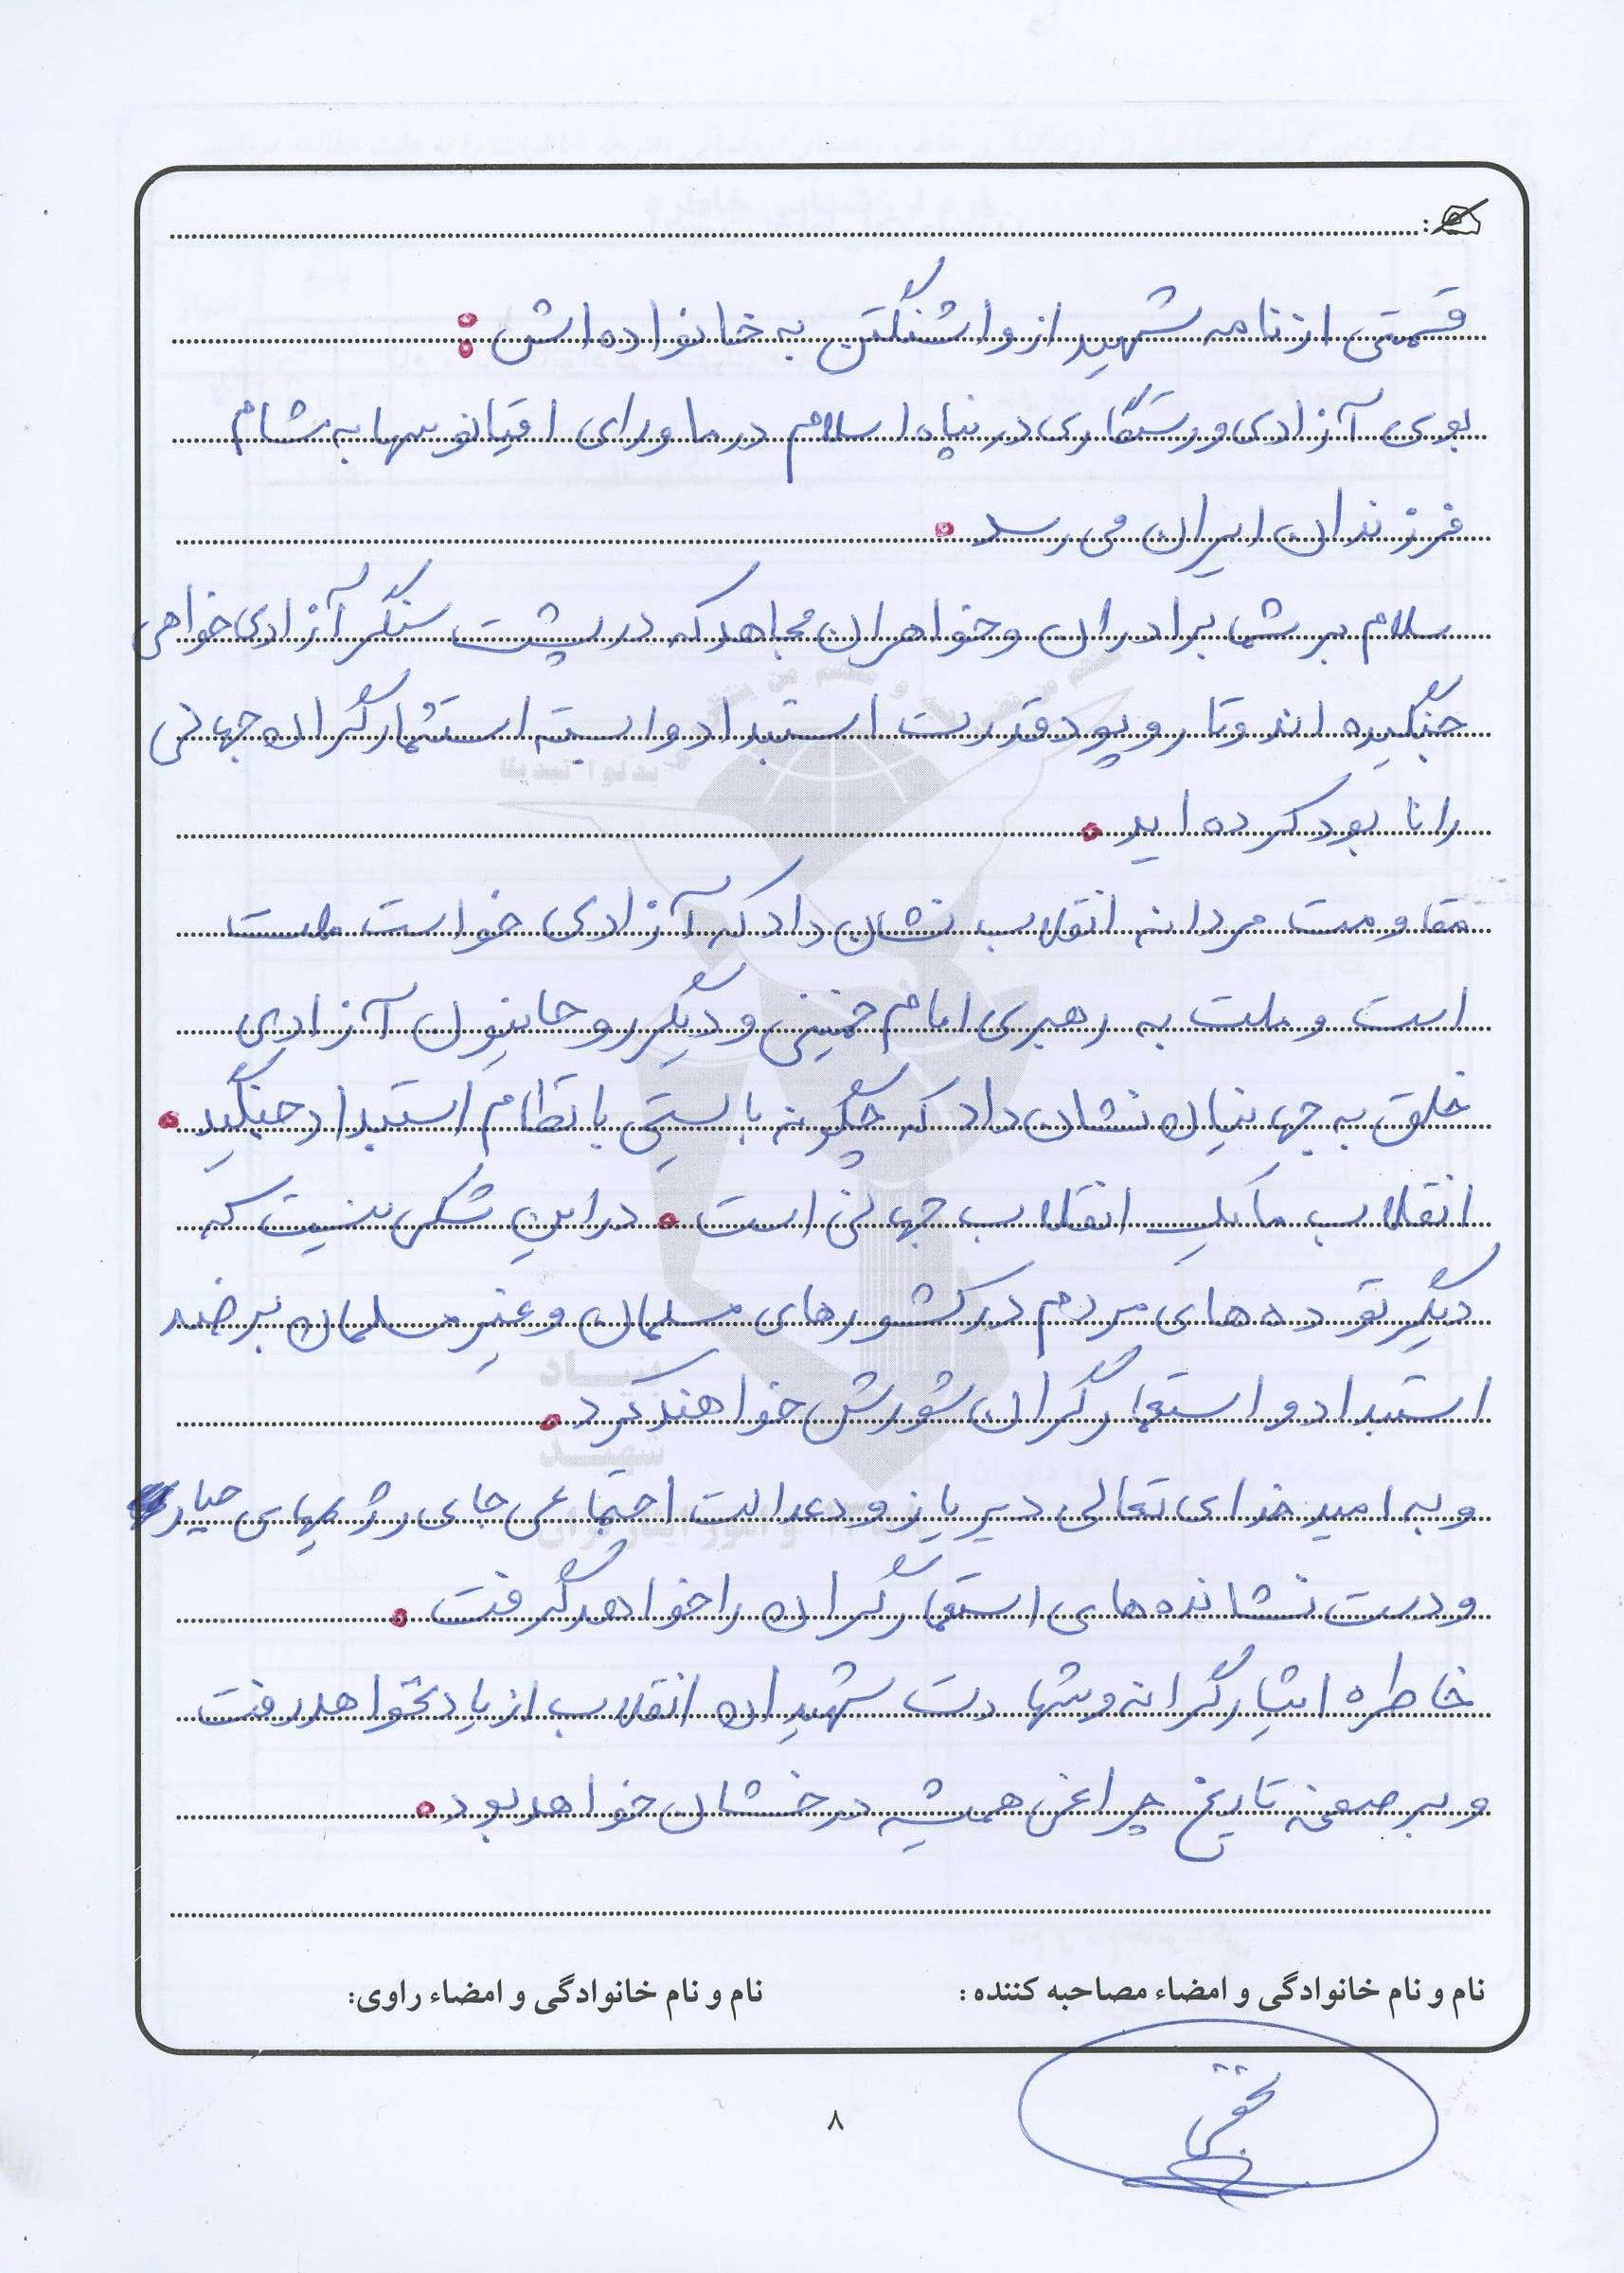 قسمتی از نامه شهید از واشنگتن به خانواده اش :
بوی آزادی و رستگاری در پناه اسلام در ماورای اقیانوسها به مشام
فرزندان ایران می رسد .
سلام بر شما برادران و خواهران مجاهد که در پشت سنگر آزادی خواهی
جنگیده اند و تار و پود قدرت استبداد وابسته استثمارگران جهانی
را نابود کرده اید .
مقاومت مردانه انقلاب نشان داد که آزادی خواست ملت
است و ملت به رهبری امام خمینی و دیگر روحانیون آزادی
خلق به جهانیان نشان داد که چگونه بایستی با نظام استبداد جنگید .
انقلاب ما یک انقلاب جهانی است . در این شکی نیست که
دیگر توده های مردم در کشورهای مسلمان و غیر مسلمان بر ضد
استبداد و استعمارگران شورش خواهند کرد .
و به امید خدای تعالی دیر یا زود عدالت اجتماعی جای رژیمهای جبار
و دست نشانده های استعمارگران را خواهد گرفت .
خاطره ایثارگرانه و شهادت شهیدان انقلاب از یاد نخواهد رفت
و بر صفحه تاریخ چراغی همیشه درخشان خواهد بود .
نام و نام خانوادگی و امضاء مصاحبه کننده :
نام و نام خانوادگی و امضاء راوی:
۸